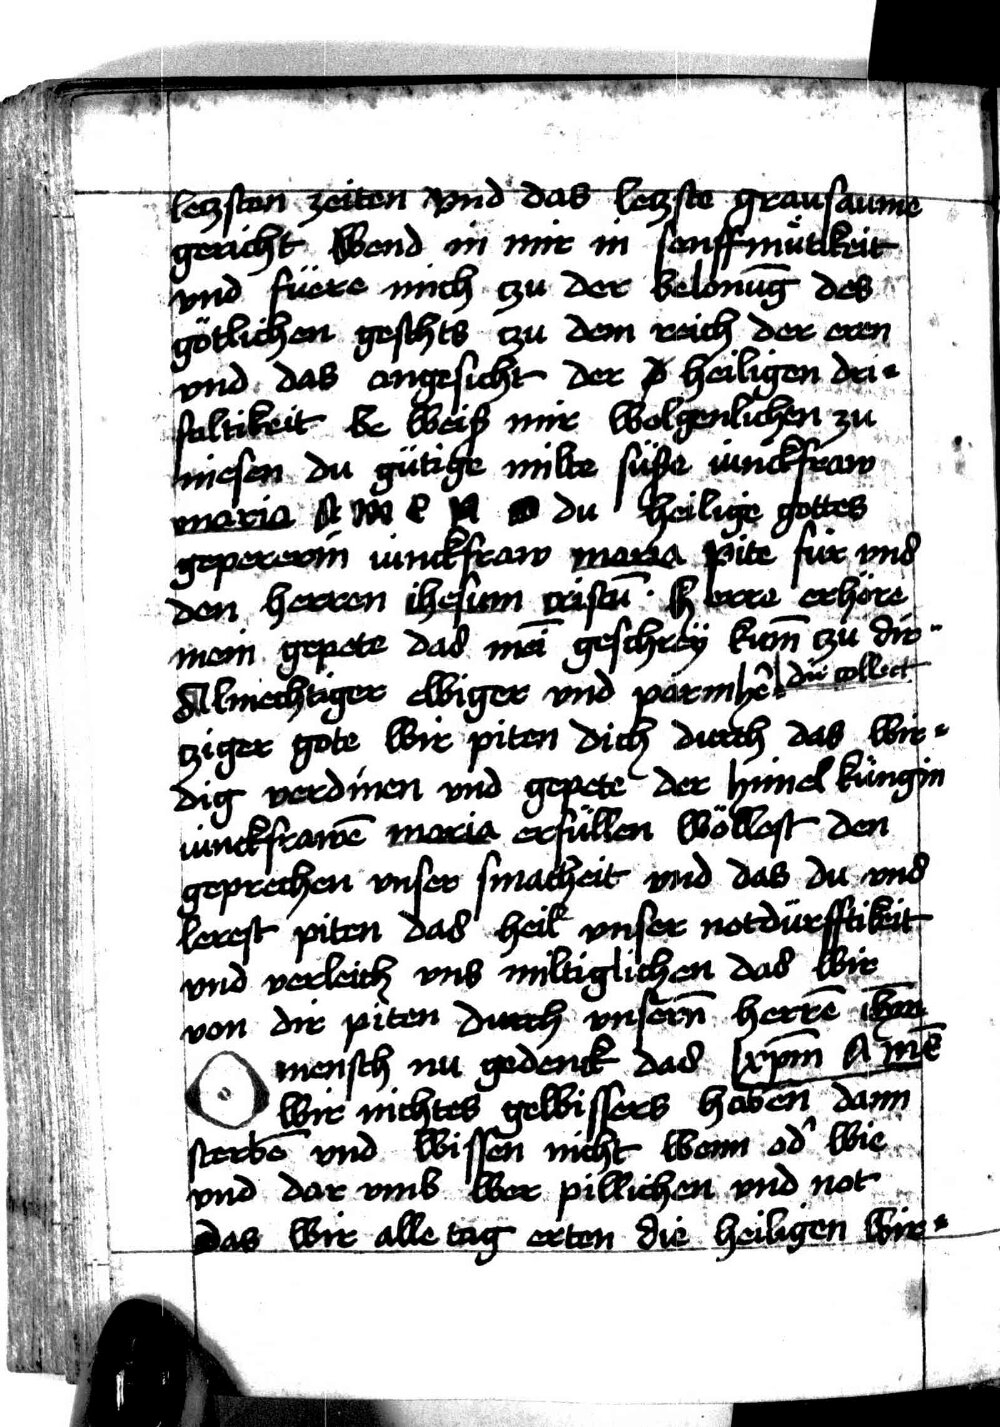 letzsten zeiten vnd das letzste grausaume
gericht Wend in mir in senffmütikeit
vnd füere mich czu der belonūg des
götlichen geschts czu dem reich der eren
vnd das angesicht der heiligen dri-
faltikeit Weiß mir Wolgenlichen zu
niesen du gütige milte süße iunckfraw
maria A M E N O du heilige gottes
gepererin iunckfraw maria pite für vns
den herren ihesum cristū · herre erhöre
mein gepete das mēi geschrey kum̄ czu dir
Almechtiger ewiger vnd parmhē- die collect
cziger gote Wir piten dich durch das Wir-
dig verdinen vnd gepete der himel küngin
iunckfrawē maria erfüllen Wöllest den
geprechen vnser smacheit vnd das du vns
lerest piten das heil vnser notdürfftikeit
vnd verleich vns miltiglichen das Wir
von dir piten durch vnsern̄ herrē ihm̄
O mensch nu gedenck das xpm̄ A mē
Wir nichtes gewissers haben dann
sterbē vnd Wissen nicht Wenn od' Wie
vnd dar vmb Wer pillichen vnd not
das Wir alle tag erten die heiligen Wir-